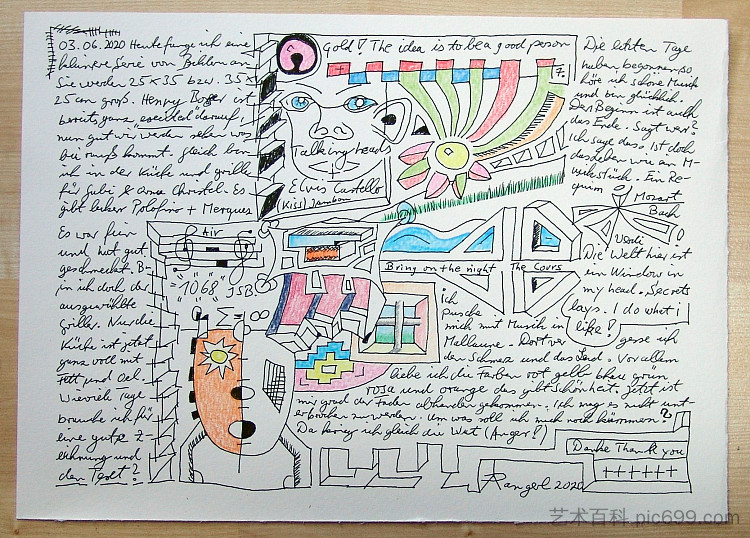 03.06.2020 Heute fange ich eine
kleinere Serie von Bildern an
Sie werden 25 x 35 bzw. 35 x
25 cm groß. Henry ist
bereits ganz darauf,
nun gut wir werden sehen was
bei rauß kommt. Gleich bin
ich in der Küche und grille
für Gabi & Oma Christel. Es
gibt leker + Merques
Es war fein
und hat gut
geschmeckt. B-
in ich doch der
ausgewählte
Griller. Nur die
Küche ist jetzt
ganz voll mit
Fett und Oel.
Wieviele Tage
brauche ich für
eine gute Z-
eichnung und
den Text?
Gold! The idea is to be a good person
7.
Talking heads
+
Elvis Costello
(Kiss) Jambon
Air
"1068" JSB.
Bring on the night The Cours
Die letzten Tage
haben begonnen so
höre ich schöne Musik
und bin glücklich.
Der Beginn ist auch
das Ende. Sagt wer?
Ich sage das. Ist doch
das Leben wie ein M-
usikstück. Ein Re-
quiem
Mozart
Bach
Verdi
Die Welt hier ist
ein Window in
my head. Secrets
lays. I do what i
like!
Ich
pusche
mich mit Musik in
Malleure. Dort ver gesse ich
den Schmerz und das Leid. Vor allem
liebe ich die Farben rot gelb blau grün
rosa und orange das gibt Schönheit. Jetzt ist
mir grad der Faden abhanden gekommen. Ich mag es nicht unt-
erbrochen zu werden. Um was soll ich mich noch kümmern?
Da krieg ich gleich die Wut (Anger!)
Danke Thank you
++++++
Rangerl 2020
艺术百科 pic699.com